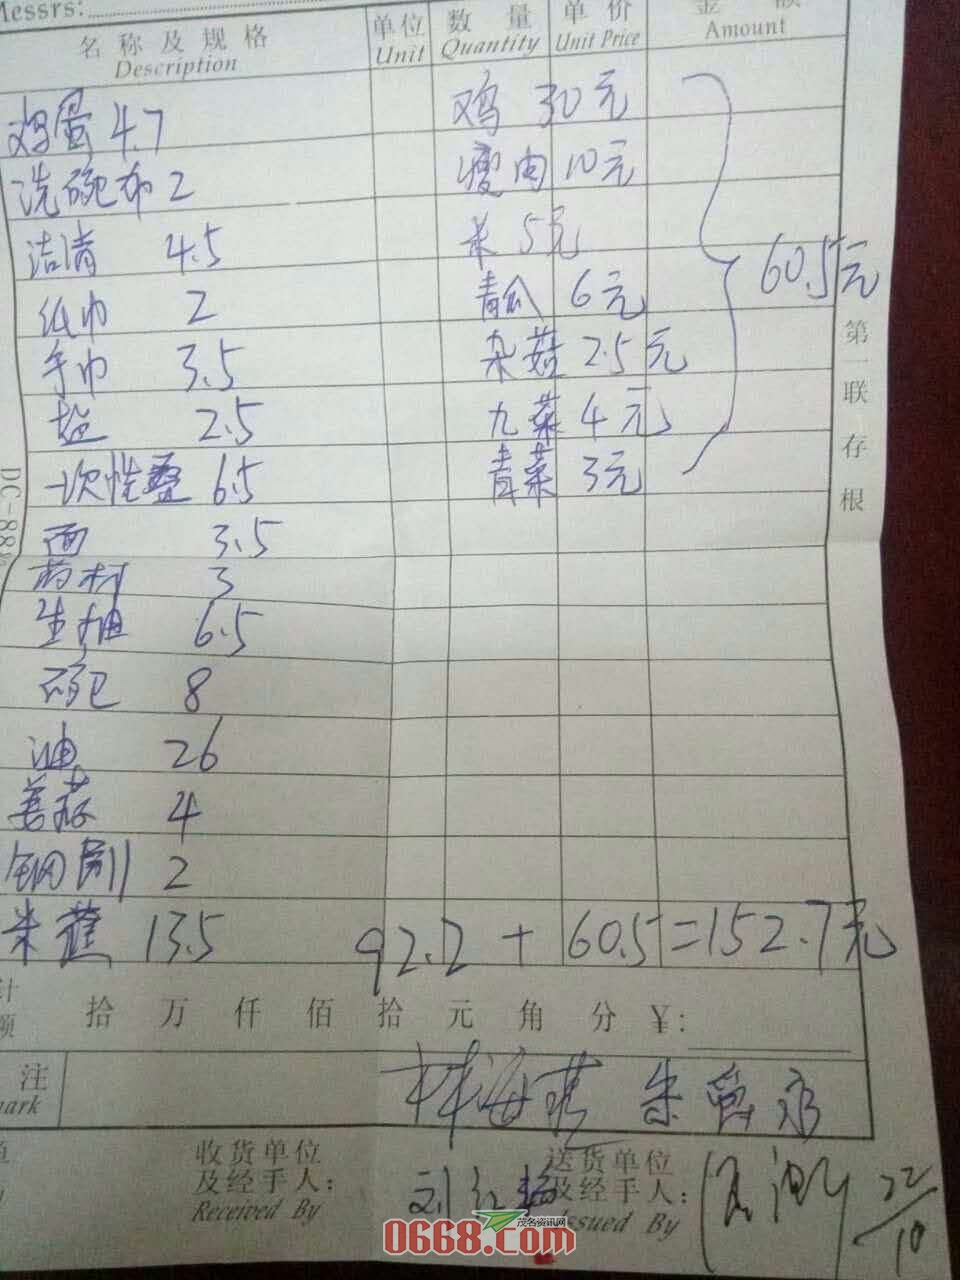 Messrs:
名称及规格 单位 数量 单价 金额
Description Unit Quantity Unit Price Amount
鸡蛋 4.7 鸡 30元
洗碗布 2 瘦肉 10元
洁清 4.5 米 5元
60.5元
纸巾 2 青瓜 6元
手巾 3.5 杂菇 2.5元
盐 2.5 九菜 4元
一次性 6.5 青菜 3元
面 3.5
药材 3
生抽 6.5
碗 8
油 26
姜蒜 4
钢刷 2
米 13.5 92.2 + 60.5 = 152.7元
第一联存根
DC-88
计 拾 万 仟 佰 拾 元 角 分 ￥:
额
注
mark
林海燕 朱
收货单位 送货单位
及经手人: 及经手人:
Received By Issued By
刘红梅
22/10
茂名资讯网
0668.com